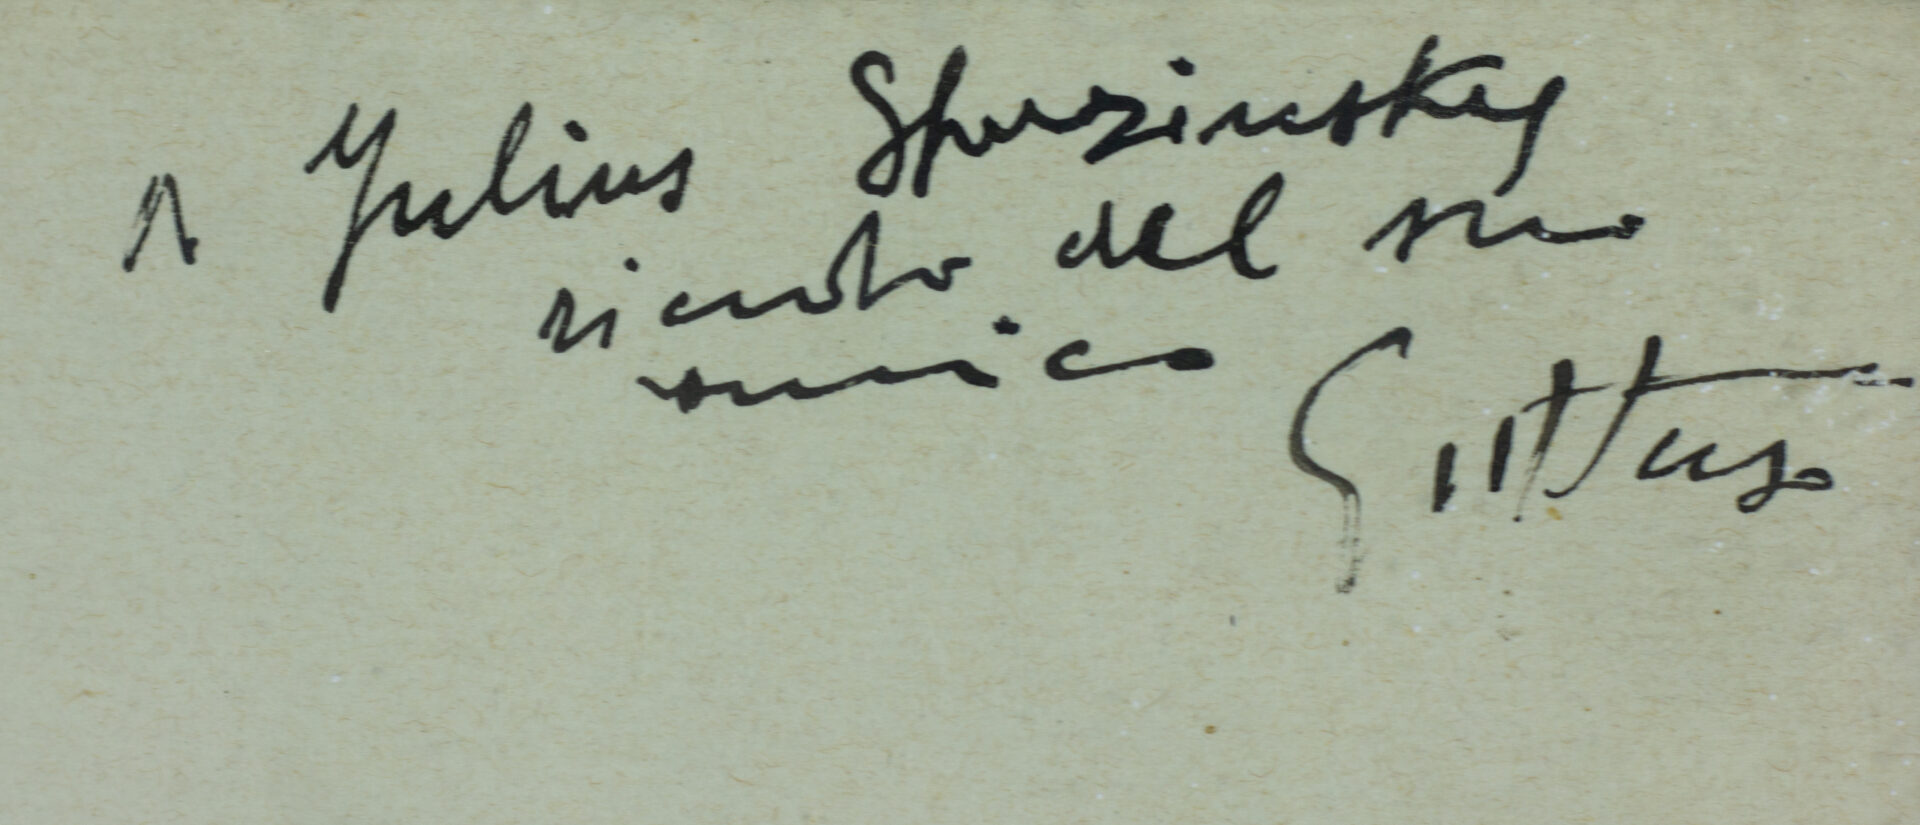 A Julius Starzinsky
ricordo del suo
amico
Guttuso